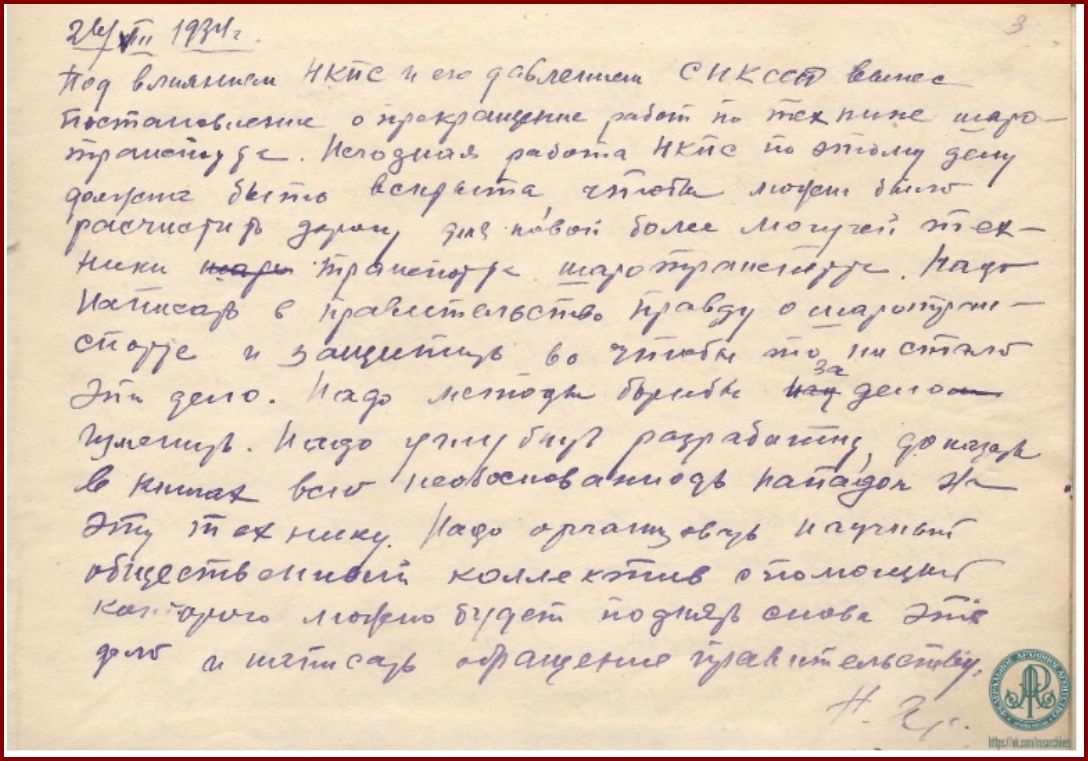 26/VII 1934 г.
3
Под влиянием НКПС и его давлением СНКССР вынес
постановление о прекращение работ по технике шаро-
транспорта. Исходная работа НКПС по этому делу
должна быть вскрыта, чтобы можно было
расчистить дорогу для новой более могучей тех-
ники транспорта шаротранспорта. Надо
написать в правительство правду о шаротран-
спорте и защитить во чтобы то ни стало
это дело. Надо методы борьбы за дело
изменить. Надо углубить разработку, доказать
в книгах всю необоснованность нападок на
эту технику. Надо организовать научный
общественный коллектив с помощью
которого можно будет поднять снова это
дело и написать обращение правительству.
Н. Яр.
ФЕДЕРАЛЬНОЕ АРХИВНОЕ АГЕНТСТВО
https://vk.com/rusarchives